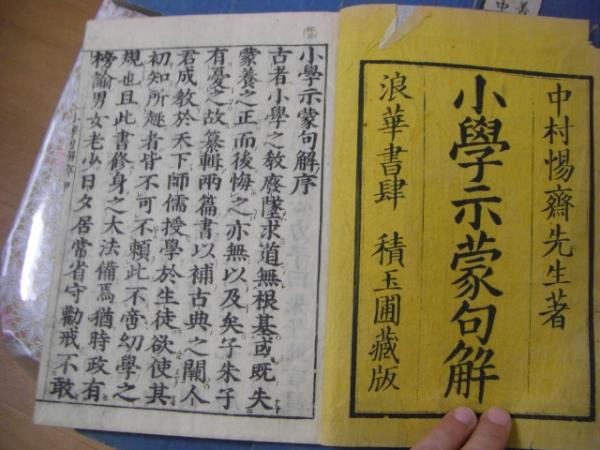 中村惕齋先生著
小學示蒙句解
浪華書肆 積玉圃藏版
小學示蒙句解序
古者小學之教廢墜求道無根基或既失
蒙養之正而後悔之亦無以及矣子朱子
有憂之故纂輯兩篇書以補古典之闕人
君成教於天下師儒授學於生徒欲使其
初知所趣者皆不可不賴此不啻幼學之
規也且此書修身之大法備焉猶時政有
榜諭男女老少日夕居常省守勸戒不敢
小學句解序